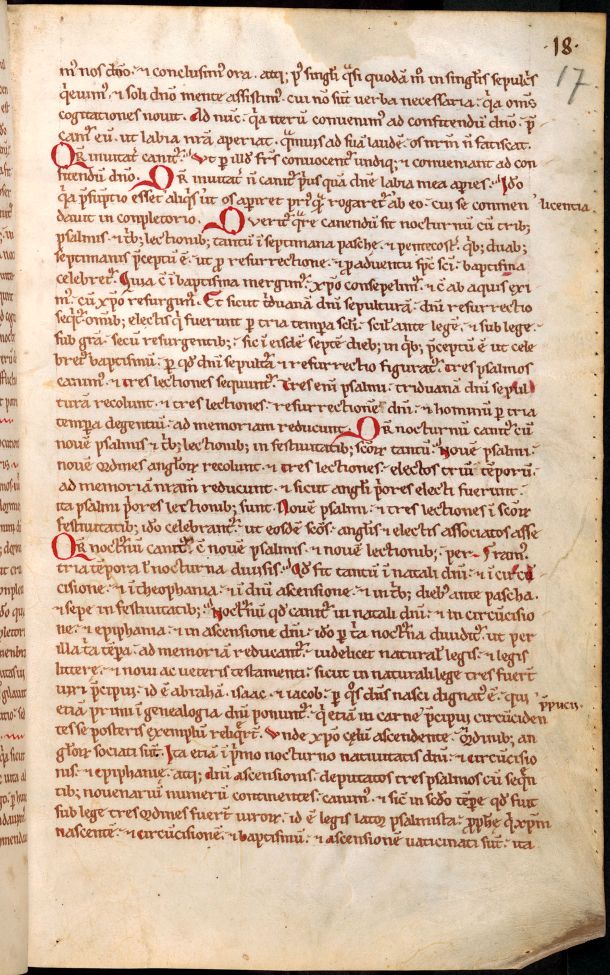 ·18·
17
m̄ nos dn̄o · ⁊ conclusim᷒ ora · atq; p᷒ singl̄i q̄si quodā m̄ in singl̄is sepulc̄s
q̄rim᷒ · ⁊ soli dn̄o mente assistim᷒ · cui nō sūt verba necessaria · q̄a om̄s
cogitationes nouit · Ad nūc · q̄a iterū conuenim᷒ ad confitendū dn̄o · p̄
cam᷒ eū · ut labia n̄ra aperiat · q̄muis ad suā laudē · os n̄rm n̄ fatiscat ·
Qr̄ inuitat̄ canit᷒ · Ut p illd̄ fr̄s conuocent᷒ undiq; ⁊ conueniant ad con
fitendū dn̄o · Qr̄ inuitat̄ n̄ canit᷒ p̄us quā dn̄e labia mea apies · Ido
q̄a p̄sūptio esset aliq̄s ut os apiret pri᷒ q̄ rogaret᷒ ab eo · cui se commen
licentia
dauit in conpletorio · Querit᷒ q̄re canendū sit nocturnū cū trib;
psalmis · ⁊ t̄b; lectionib; tantū ī septimana pasche · ⁊ pentecost᷒ · q̄b; duab;
septimanis p̄ceptū ē · ut p resurrectione · ⁊ p aduentu sp̄c sc̄i · baptisma
celebret᷒ · Quia c̄ ī baptisma mergim᷒ · xp̄o consepelim᷒ · ⁊ c̄ ab aquis exi
m᷒ · cū xp̄o resurgim᷒ · Et sicut t̄duanā dn̄i sepulturā · dn̄i resurrectio
seq̄t᷒ · omīb; electis q̄ fuerunt p tria tempa sc̄li · scil̄ ante legē · ⁊ sub lege ·
sub grā · secū resurgentib; · sic ī eisdē septē dieb; in q̄b; p̄ceptū ē ut cele
bret᷒ baptismū · p qd̄ dn̄i sepult᷒a ⁊ resurrectio figurat᷒ · tres psalmos
canim᷒ · ⁊ tres lectiones sequunt᷒ · Tres eni psalmi · triduanā dn̄i sepul
turā recolunt · ⁊ tres lectiones · resurrectionē dn̄i · ⁊ hominū p tria
tempa degentiū · ad memoriam reducunt · Qr̄ nocturnū canit᷒ cū
nouē psalmis · ⁊ t̄b; lectionib; in festiuitatib; scōꝝ tantū · Nouē psalmi ·
nouē ordines angloꝝ recolunt · ⁊ tres lectiones · electos triū tēporū ·
ad memoriā nr̄am reducunt · ⁊ sicut angl̄i p̄ores electi fuerunt ·
ita psalmi p̄ores lectionib; sunt · Nouē psalmi · ⁊ tres lectiones ī scōꝝ
festiuitatib; ido celebrant᷒ · ut eosdē scōs · anglis · ⁊ electis associatos asse
Qr̄ noct᷒nū canit᷒ · c̄ nouē psalmis · ⁊ nouē lectionib; per ram᷒ ·
tria tēporal nocturna diuisis · qd̄ fit tantū ī natali dn̄i · ⁊ ī circū
cisione · ⁊ ī theophania · ⁊ ī dn̄i ascensione · ⁊ in t̄b; dieb᷒ ante pascha ·
⁊ sepe in festiuitatib; Noct᷒nū qd̄ canit᷒ in natali dn̄i · ⁊ in circūcisio
ne · ⁊ epiphania · ⁊ in ascensione dn̄i · ido p t᷒a noct᷒na diuidit᷒ · ut per
illa t᷒a tēpa · ad memoriā reducant᷒ · uidelicet natural᷒ legis · ⁊ legis
littere · ⁊ noui ac veteris testamenti · sicut in naturali lege tres fuerūt
uiri p̄cipui · id ē abrahā · isaac · ⁊ iacob · p q̄s dn̄s nasci dignat᷒ ē · qui
p̄puciī ·
etiā primi ī genealogia dn̄i ponunt᷒ · q̄ etiā in carne p̄cipui circūciden
tes se posteris exemplū reliq̄rūt · Unde xp̄o celū ascendente · ordinib; an
gloꝝ sociati sūt · Ita etiā ī p̄mo nocturno natiuitatis dn̄i · ⁊ circūcisio
nis · ⁊ epiphanie · atq; dn̄i ascensionis · deputatos tres psalmos cū seq̄n
tib; nouenariū numerū continentes · canim᷒ · ⁊ sic̄ in sc̄do tēpe qd̄ fuit
sub lege tres ordines fuerūt uiroꝝ · id ē legis latoꝝ psalmista · prophe᷒ q̄ xp̄m
nascentē · ⁊ circūcisionē · ⁊ baptismū · ⁊ ascensionē uaticinati sūt · ita